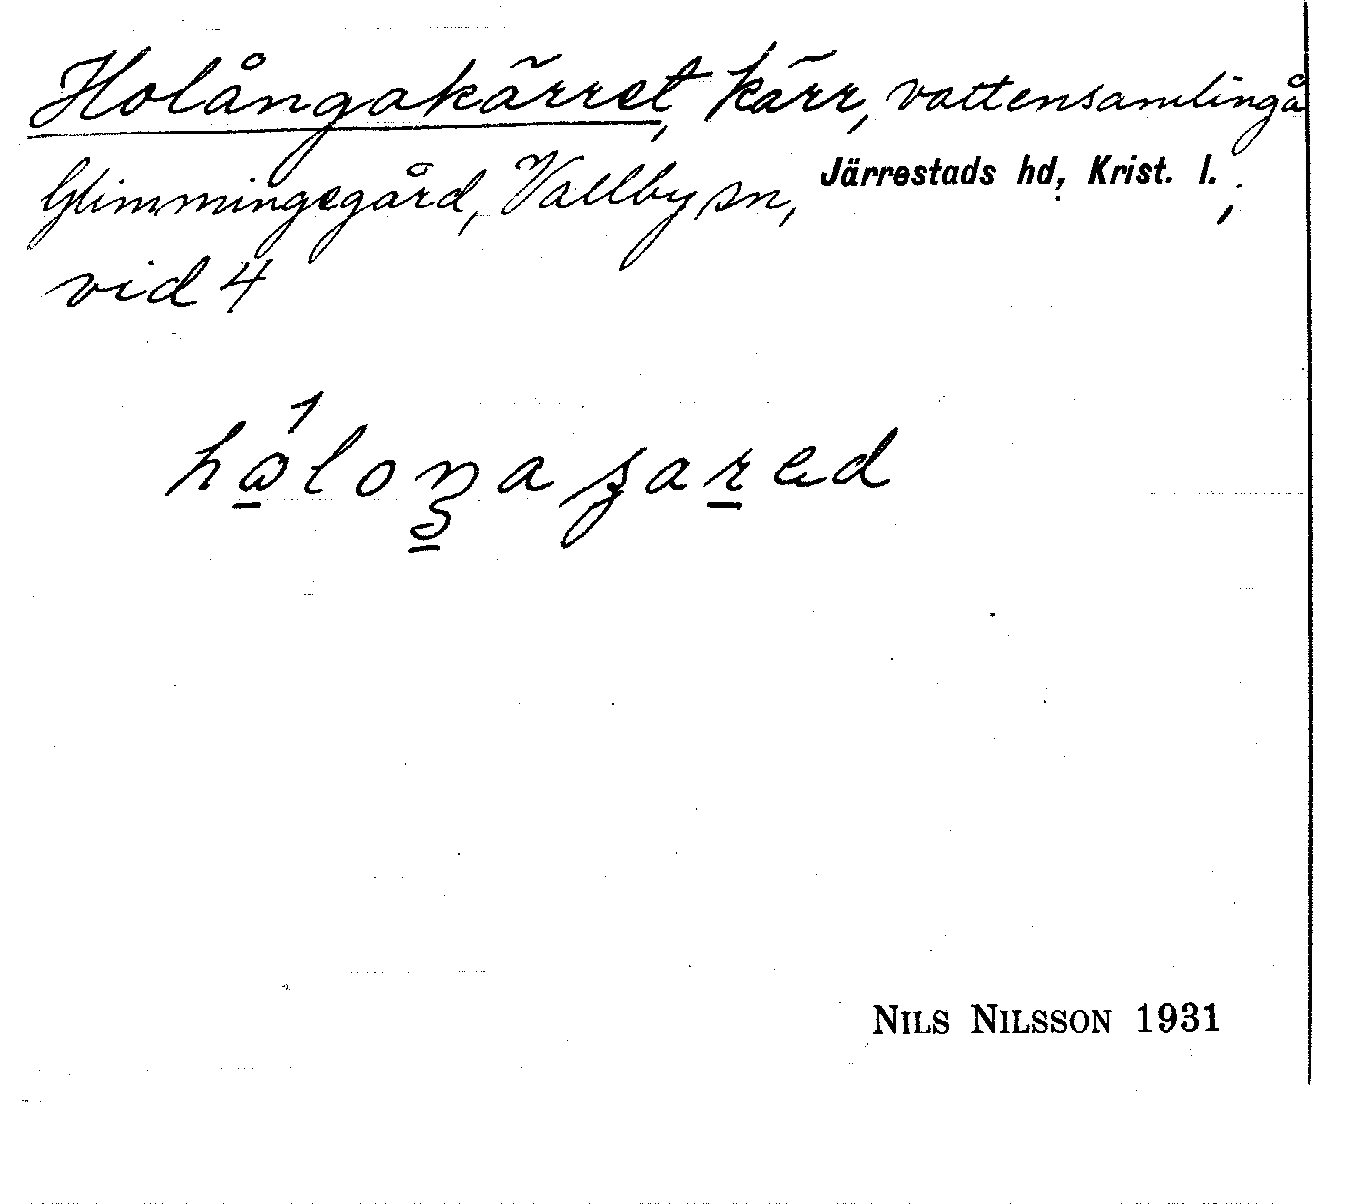 Holångakärret, kärr, vattensamling å
Glimmingegård, Vallby sn, Järrestads hd, Krist. l.,
vid 4
NILS NILSSON 1931